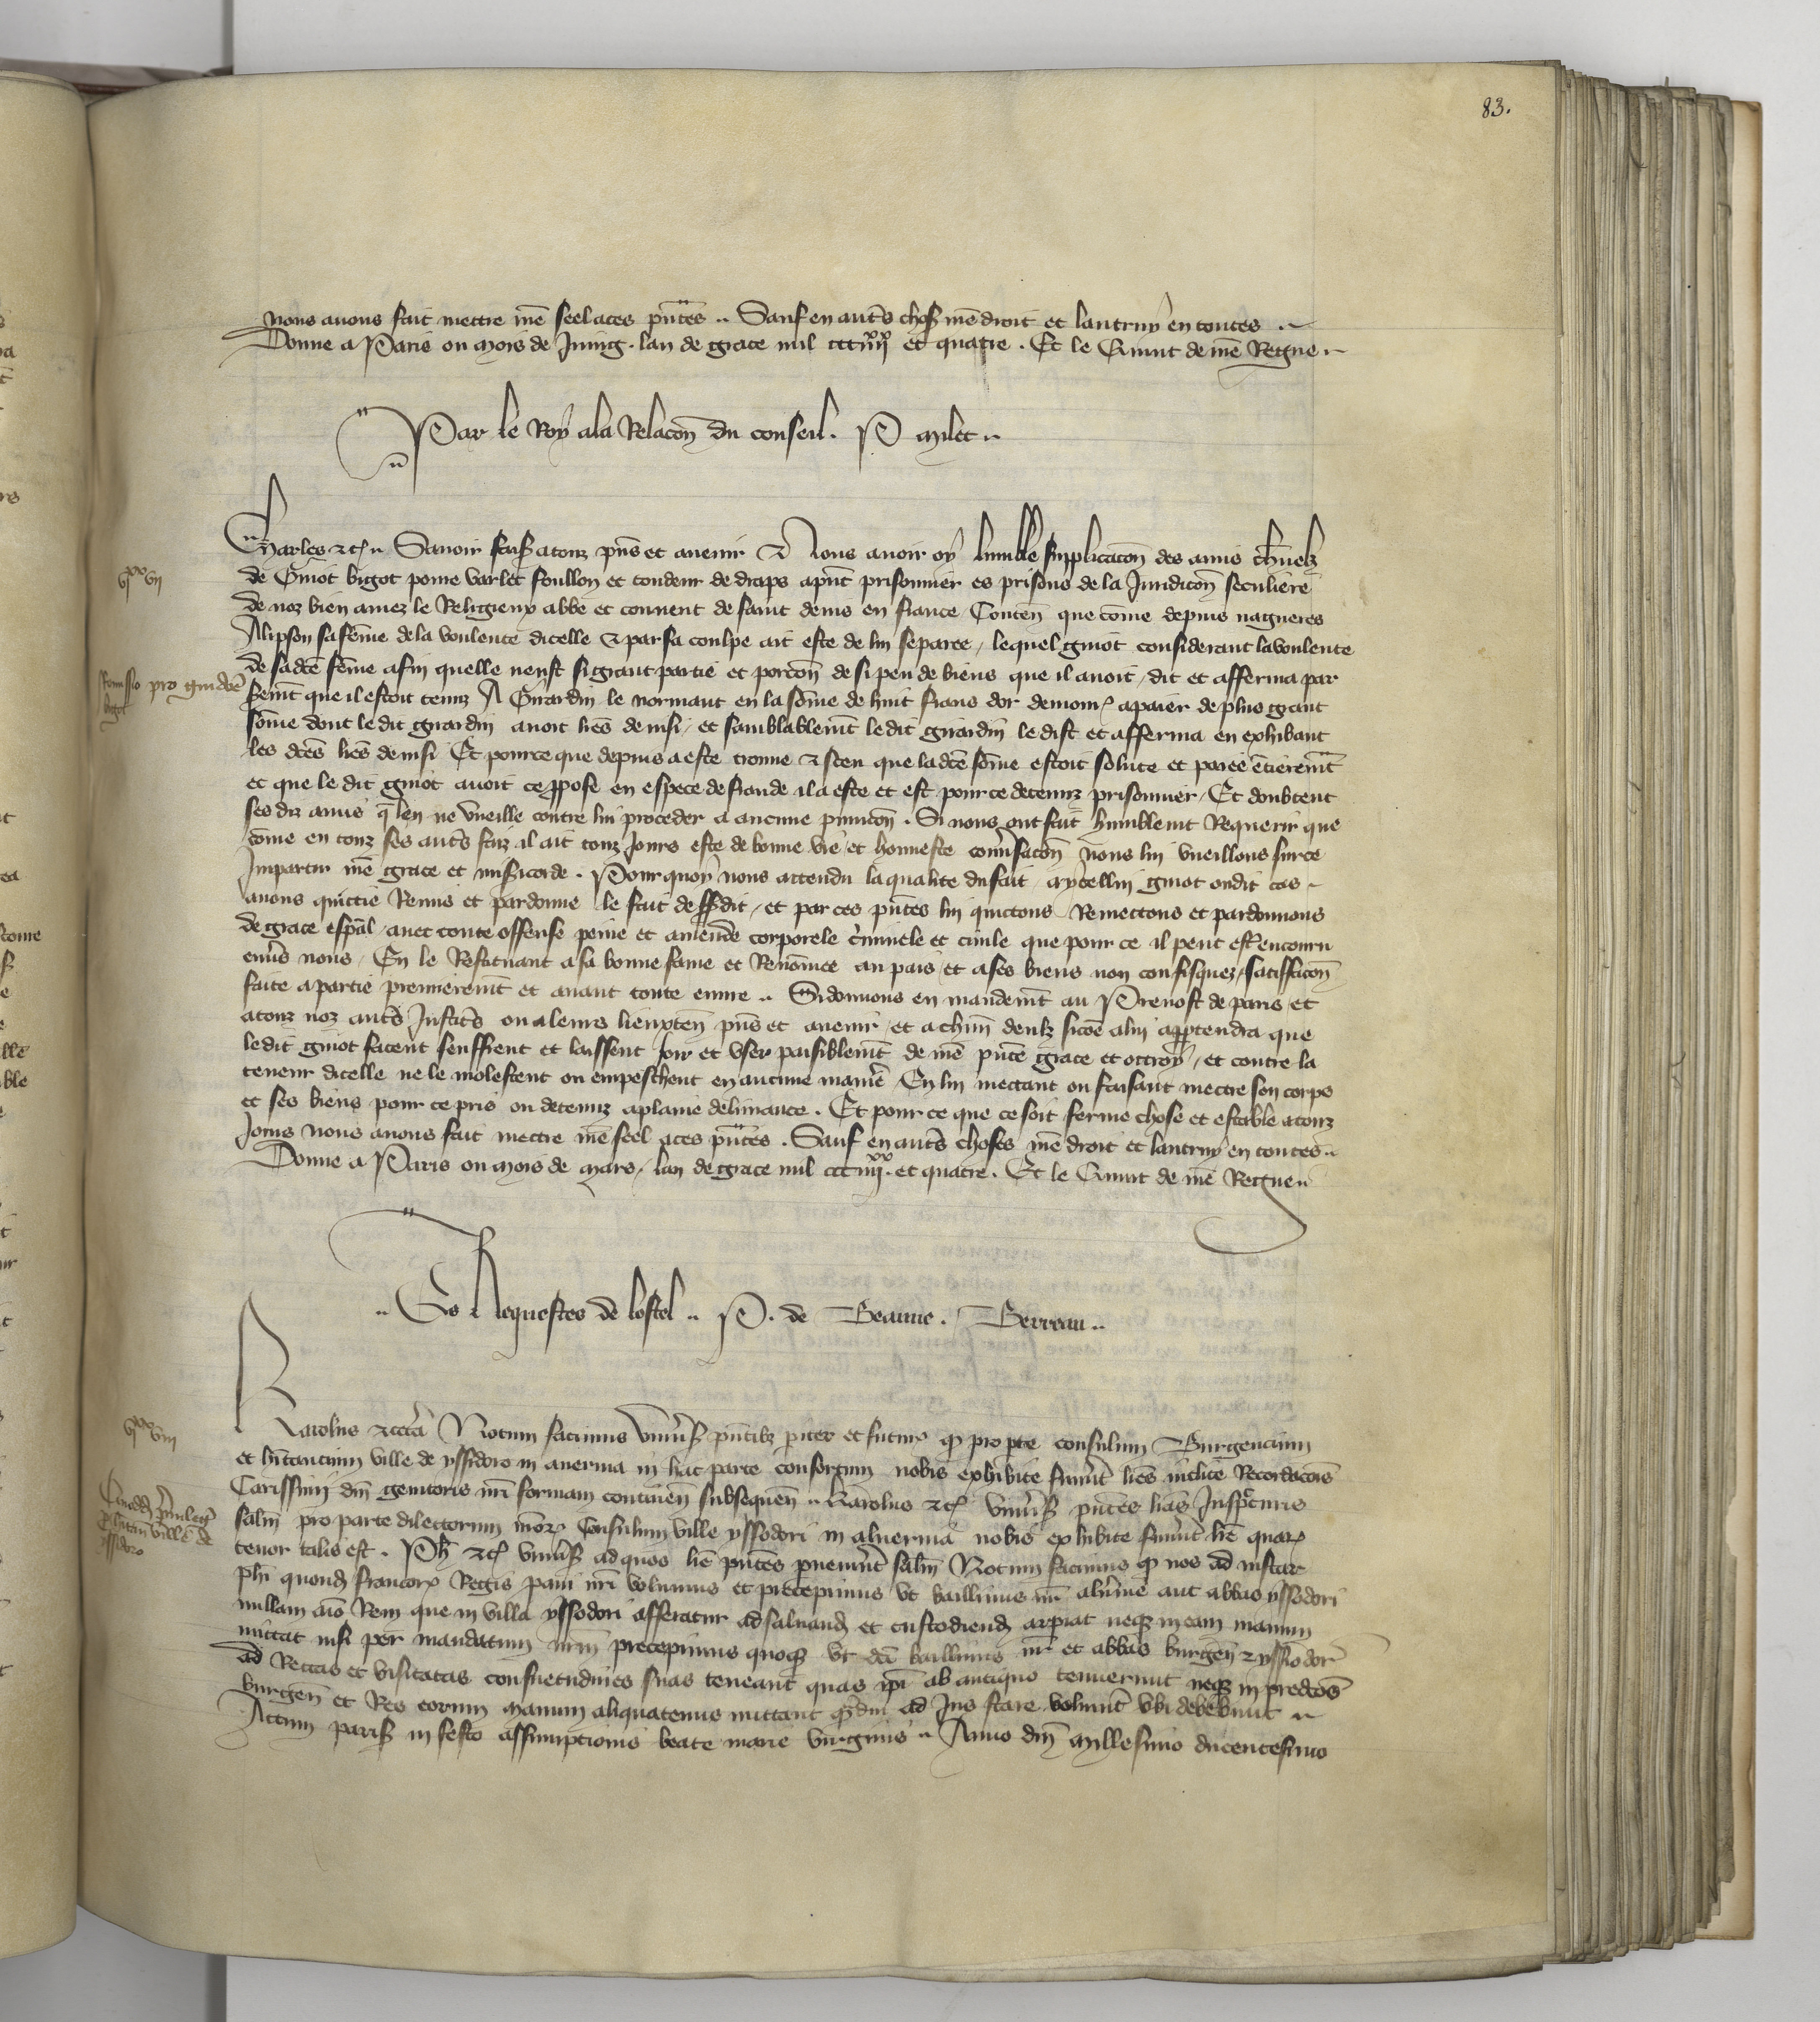 83.
nous avons fait mettre nre seel a ces pntes .. Sauf en autres choses nre droit et lautruy en toutes ..
Donne a Paris ou mois de Juing . lan de grace mil ccciiiixx et quatre . Et le Quint de nre Regne ..
Par le Roy a la Relacon du conseil . P mulet ..
Charles etc .. Savoir faisz a touz pns et avenir Nous avoir oy lumble supplicacon des amis charnelz
vixx vii
de Guiot bigot povre varlet foullon et tondeur de draps apnt prisonnier es prisons de la Juridicon seculiere
de noz bien amez le Religieux abbe et convent de saint denis en france Conten que come depuis nagueres
Alipson sa feme de la voulente dicelle et par sa coulpe ait este de lui separee , lequel guiot considerant la voulente
de sa dce feme afin quelle neust si grant partie et porcon de si peu de biens que il avoit , dit et afferma par
Remissio pro guidoe bigot
serment que il estoit tenuz A Girardin le normant en la some de huit frans dor demour a paier de plus grant
some dont le dit girardin avoit lres de nsi , et samblablemt le dit girardin le dist et afferma en exhibant
les dces lres de nsi Et pource que depuis a este trouve et sceu que la dce some estoit solute et paiee entieremt
et que le dit guiot avoit ce ppose en espece de fraude il a este et est pour ce detenuz prisonnier , Et doubtent
ses diz amis q len ne vueille contre lui proceder a aucune punicon . Si nous ont fait humblemt Requerir que
come en touz ses autres faiz il ait touz Jours este de bonne vie et honneste conversacon nous lui vueillons sur ce
Impartir nre grace et misericorde . Pourquoy nous attendu la qualite du fait , a ycellui guiot ou dit cas
avons quittie Remis et pardonne le fait dessdit , et par ces pntes lui quittons Remettons et pardonnons
de grace espal , avec toute offense peine et amende corporele criminele et civile que pour ce il peut estre encouru
envers nous , En le Restituant a sa bonne fame et Renomee au pais , et a ses biens non confisquez , satiffacon
faite a partie premieremt et avant toute euvre .. Si donnons en mandemt au Prevost de paris , et
a touz noz autres Justicrs ou a leurs lieuxten pns et avenir , et a chun deulz sicoe a lui appartendra que
le dit guiot facent seuffrent et laissent Joir et user paisiblemt de nre pnte grace et ottroy , et contre la
teneur dicelle ne le molestent ou empeschent en aucune maniere , En lui mettant ou faisant mettre son corps
et ses biens pour ce pris ou detenuz a plaine delivrance . Et pour ce que ce soit ferme chose et estable a touz
Jours nous avons fait mettre nre seel a ces pntes . Sauf en autres choses nre droit et lautruy en toutes ..
Donne a Paris ou mois de mars , lan de grace mil ccciiiixx . et quatre . Et le Quint de nre Regne ..
.. Es Requestes de lostel .. P . de Beaune . Berreau ..
Karolus etcera Notum facimus univers pntibz piter et futuris q pro pte consulum Burgensium
vixx viii
et hitancium ville de yssidoro in avernia in hac parte consortum nobis exhibite fuerut lres inclite Recordacois
Carissimi dni genitoris nri formam continen subsequen .. Karolus etc univers pntes lras Inspecturis
salm pro parte dilectorum nror Consulum ville yssodori in alvernia nobis exhibite fuerut lre quar
tenor talis est . Ph etc univers ad quos lre pntes pvenerut salm Notum facimus q nos ad instar
phi quond francor Regis pavi nri volumus et precepimus ut baillivus nr alvernie aut abbas yssodori
nullam aio Rem que in villa yssodori afferatur ad salvand et custodiend arpiat neqz in eam manum
mittat nisi per mandatum nrm precepimus quoqz ut dci baillivus nr et abbas burgen et yssiodor
ad Rectas et visitatas consuetudines suas teneant quas ipi ab antiquo tenuerunt neqz in predcos
burgen et Res eorum manum aliquatenus mittant qdiu ad Jus stare volunt ubi debebunt ..
Actum paris in festo assumptionis beate marie virginis .. Anno dni millesimo ducentesimo